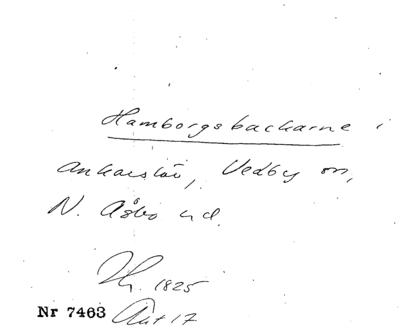 Hamborgsbackarne i
Ankarslöv, Vedby sn,
N. Åsbo hd.
1825
Nr 7463 Akt 17